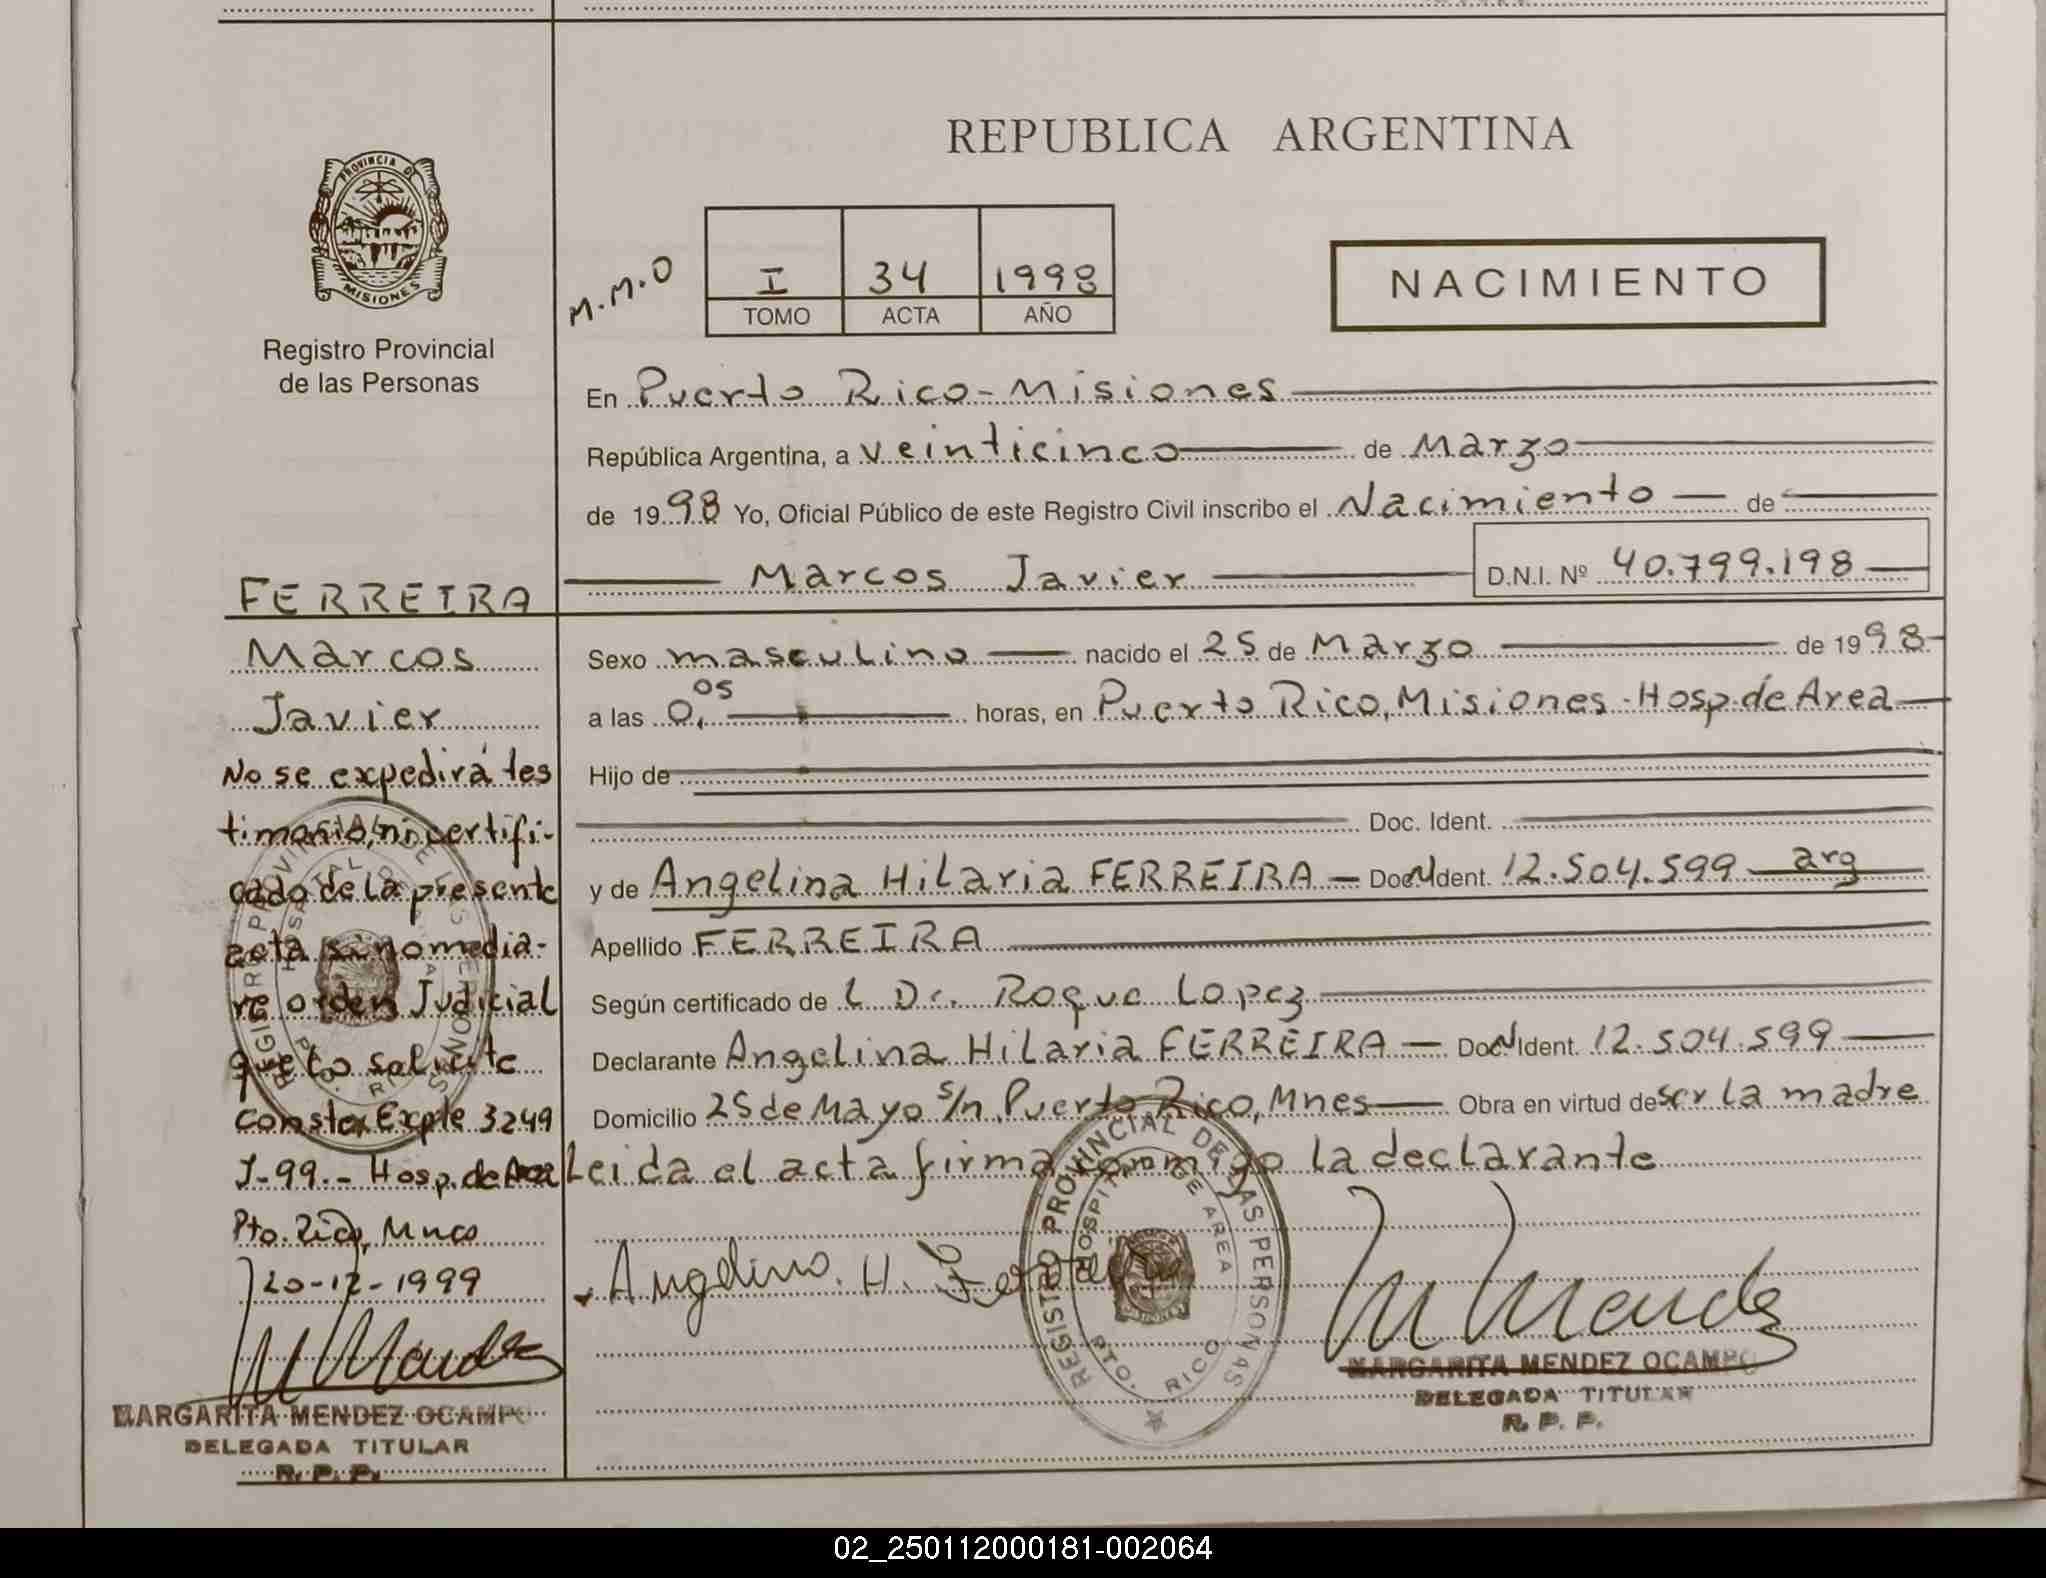 REPUBLICA ARGENTINA
PROVINCIA DE
MISIONES
Registro Provincial
de las Personas
M.M.O
I 34 1998
TOMO ACTA AÑO
NACIMIENTO
En Puerto Rico-Misiones
República Argentina, a veinticinco de Marzo
de 1998 Yo, Oficial Público de este Registro Civil inscribo el Nacimiento de
Marcos Javier D.N.I. Nº 40.799.198
Sexo masculino nacido el 25 de Marzo de 1998
a las 0,05 horas, en Puerto Rico, Misiones-Hosp.de Area
Hijo de
Doc. Ident.
y de Angelina Hilaria FERREIRA Doc. Ident. 12.504.599 arg
Apellido FERREIRA
Según certificado de L Dr. Roque Lopez
Declarante Angelina Hilaria FERREIRA Doc. Ident. 12.504.599
Domicilio 25 de Mayo s/n, Puerto Rico, Mnes Obra en virtud de ser la madre
Leida el acta firma conmigo la declarante
Angelina. H. Ferreira
REGISTRO PROVINCIAL DE LAS PERSONAS
HOSPITAL DE AREA
PTO. RICO
M Mendez
MARGARITA MENDEZ OCAMPO
DELEGADA TITULAR
R. P. P.
FERREIRA
Marcos
Javier
No se expedirá tes
timonio, ni certifi-
cado de la presente
acta si no media-
re orden Judicial
que lo solicite
consta Expte 3249
J-99.- Hosp. de Area
Pto. Rico, Mnes
20-12-1999
M Mendez
MARGARITA MENDEZ OCAMPO
DELEGADA TITULAR
R. P. P.
REGISTRO PROVINCIAL DE LAS PERSONAS
HOSPITAL DE AREA
PTO. RICO
02_250112000181-002064